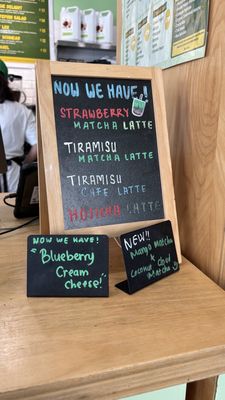 NOW WE HAVE..!
STRAWBERRY
MATCHA LATTE
TIRAMISU
MATCHA LATTE
TIRAMISU
CAFE LATTE
HOJICHA LATTE
NOW WE HAVE!!
"Blueberry
Cream
Cheese!
NEW!!
Mango Matcha
&
Coconut Cloud
Matcha
SALAD